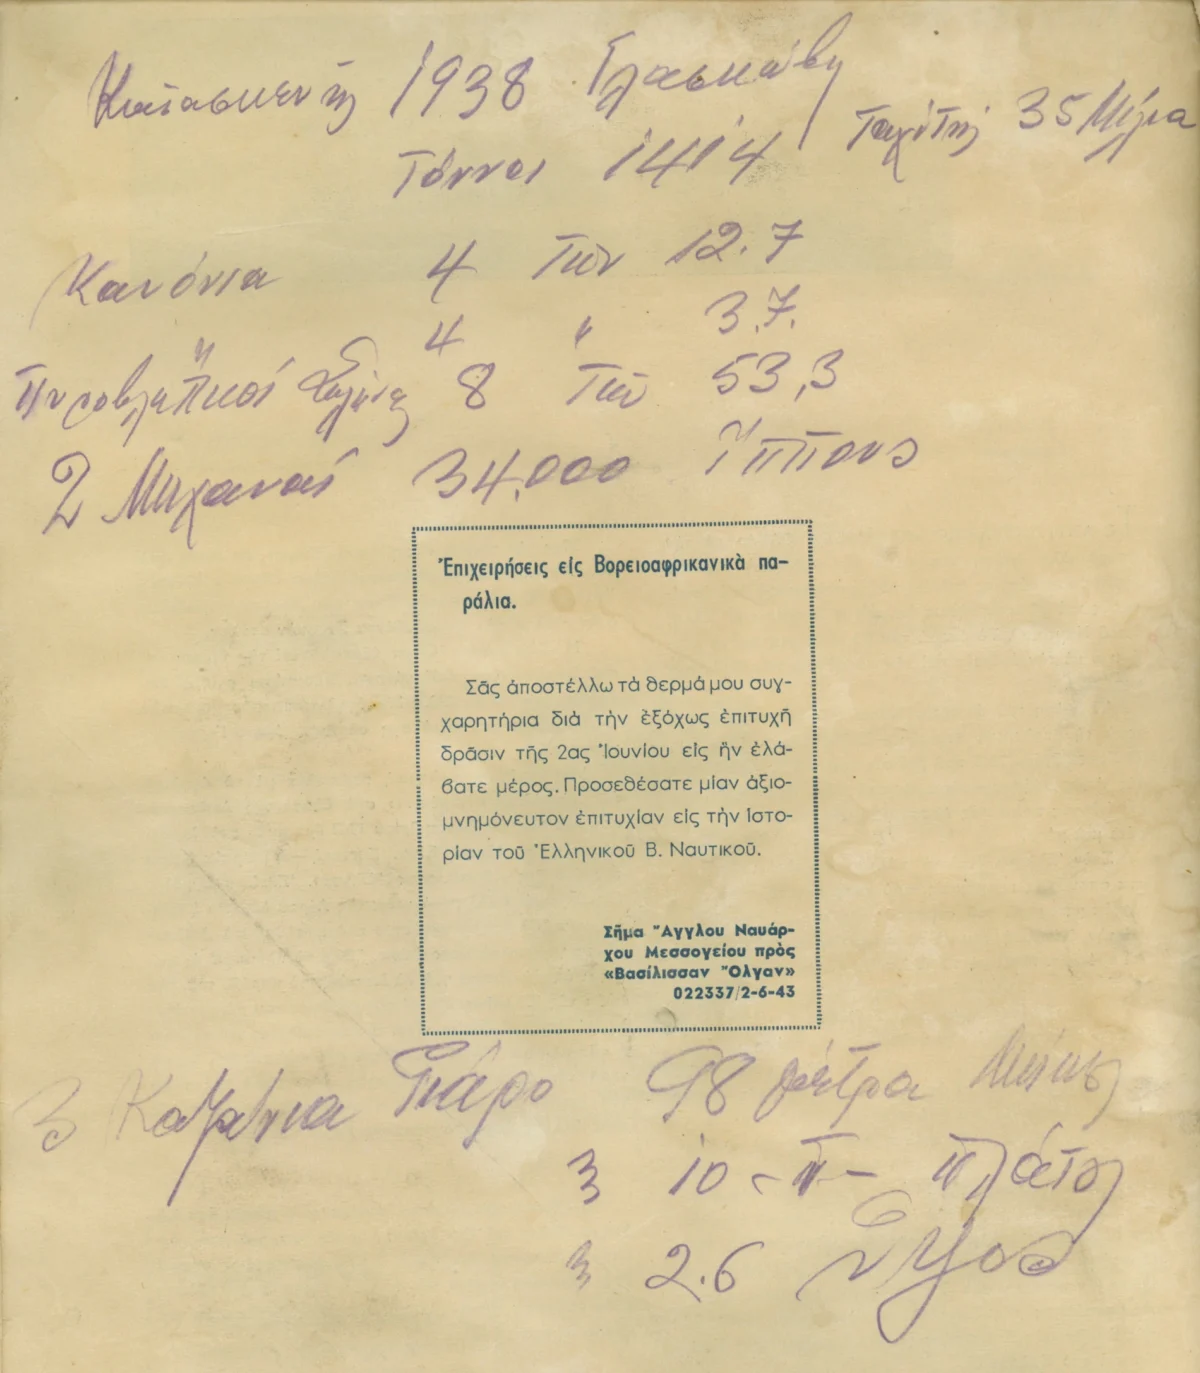 Κατασκευής 1938 Γλασκώβη
Ταχύτης 35 Μίλια
Τόννοι 1414
Κανόνια 4 τῶν 12.7
4 " 3.7.
Πυροβλητικοί Σωλῆνες 8 τῶν 53,3
2 Μηχαναί 34.000 ἵππους
Ἐπιχειρήσεις εἰς Βορειοαφρικανικὰ πα-
ράλια.
Σᾶς ἀποστέλλω τὰ θερμά μου συγ-
χαρητήρια διὰ τὴν ἐξόχως ἐπιτυχῆ
δρᾶσιν τῆς 2ας Ἰουνίου εἰς ἣν ἐλά-
βατε μέρος. Προσεθέσατε μίαν ἀξιο-
μνημόνευτον ἐπιτυχίαν εἰς τὴν ἱστο-
ρίαν τοῦ Ἑλληνικοῦ Β. Ναυτικοῦ.
Σῆμα Ἄγγλου Ναυάρ-
χου Μεσσογείου πρὸς
«Βασίλισσαν Ὄλγαν»
022337/2-6-43
3 Καζάνια 98 μέτρα Μῆκος
3 10 -"- πλάτος
3 2.6 ὕψος